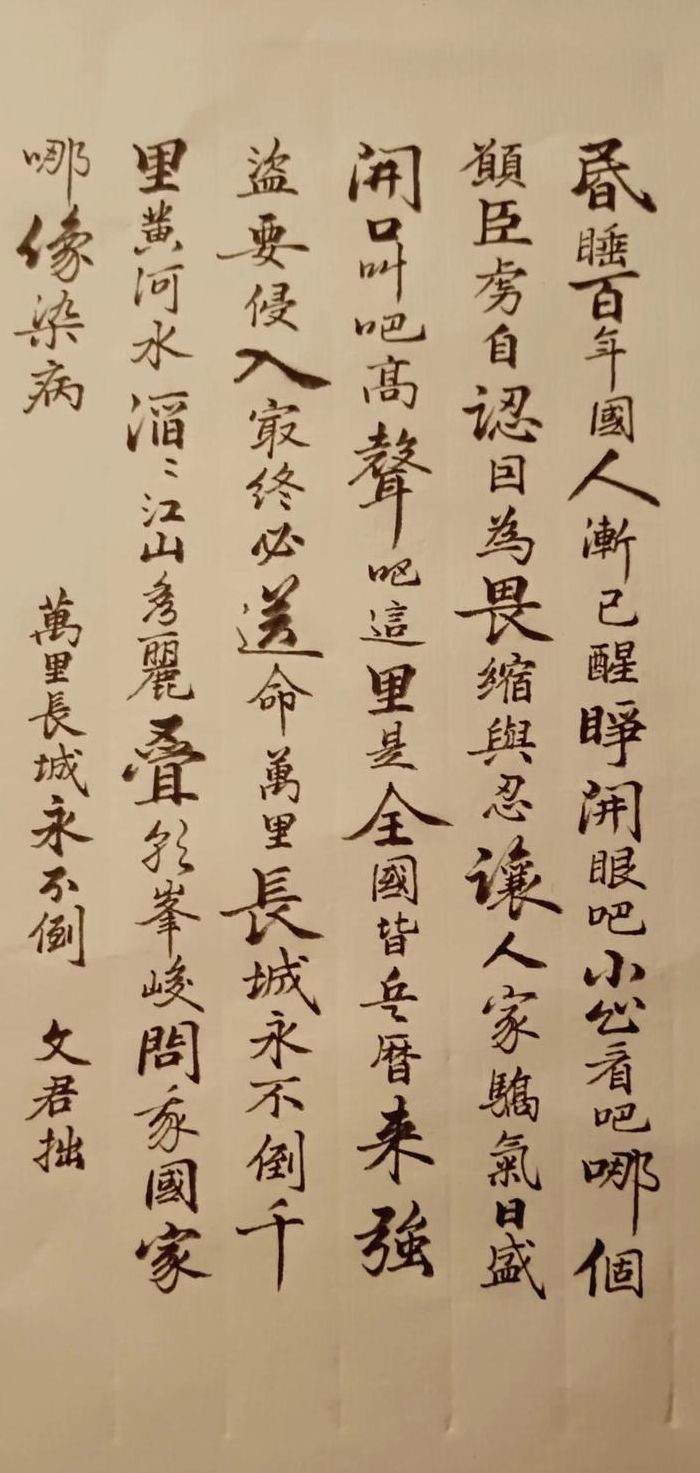 昏睡百年國人漸已醒睜開眼吧小心看吧哪個
願臣虜自認因為畏縮與忍讓人家驕氣日盛
開口叫吧高聲吧這里是全國皆兵曆來強
盜要侵入最終必送命萬里長城永不倒千
里黃河水滔〻江山秀麗叠彩峯峻問我國家
哪像染病 萬里長城永不倒 文君拙